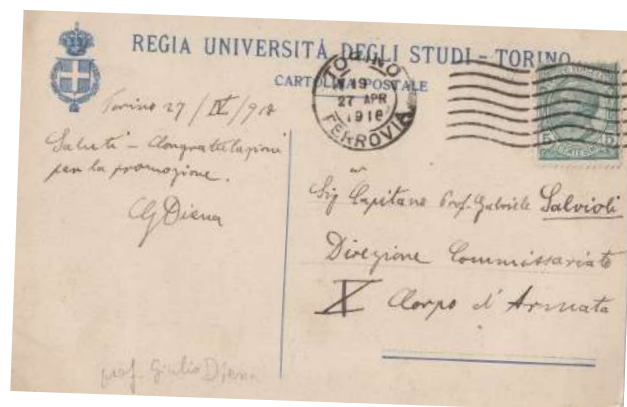 REGIA UNIVERSITÀ DEGLI STUDI - TORINO
CARTOLINA POSTALE
TORINO
19
27 APR
1918
FERROVIA
Torino 27/IV/918
Saluti - Congratulazioni
per la promozione.
G Diena
Sig Capitano Prof. Gabriele Salvioli
Direzione Commissariato
X Corpo d'Armata
prof. Giulio Diena